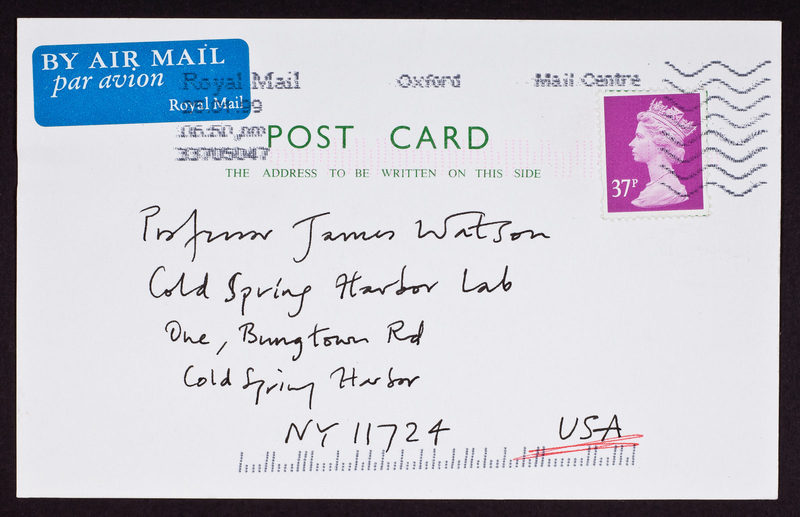 BY AIR MAIL
par avion
Royal Mail
Royal Mail Oxford Mail Centre
06.50 pm
33705047
POST CARD
THE ADDRESS TO BE WRITTEN ON THIS SIDE
37P
Professor James Watson
Cold Spring Harbor Lab
One, Bungtown Rd
Cold Spring Harbor
NY 11724 USA